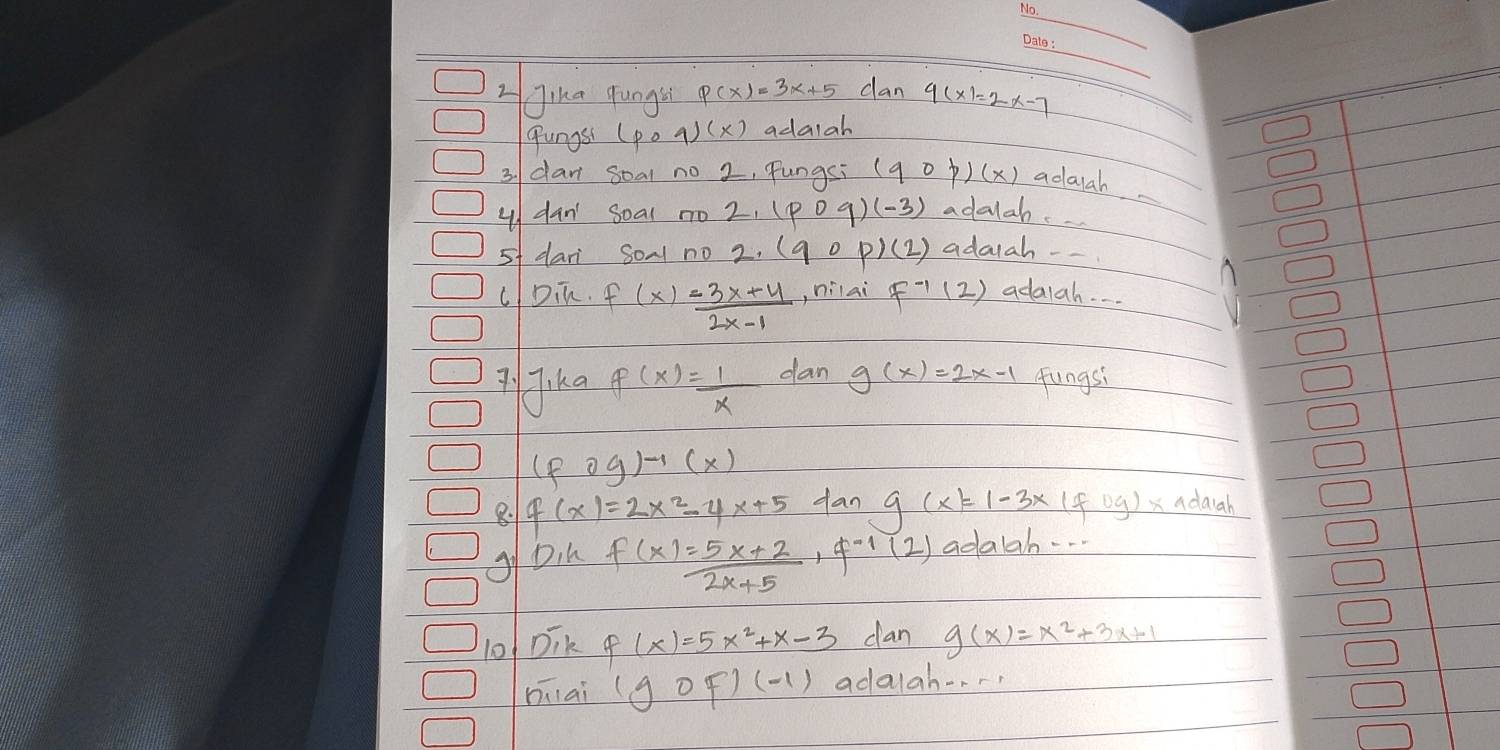 No.
Date :
2. Jika fungsi p(x) = 3x+5 dan q(x) = 2x-7
fungsi (p o q)(x) adalah
3. dari soal no 2, fungsi (q o p)(x) adalah ---
4. dari soal no 2, (p o q)(-3) adalah ...
5. dari soal no 2, (q o p)(2) adalah ---.
6. Dik. f(x) = 3x+4/2x-1, nilai f⁻¹(2) adalah ...
7. Jika f(x) = 1/x dan g(x) = 2x-1 fungsi
(f o g)⁻¹(x)
8. f(x) = 2x²-4x+5 dan g(x) = 1-3x (f o g) x adalah
9. Dik f(x) = 5x+2/2x+5, f⁻¹(2) adalah ...
10. Dik f(x) = 5x²+x-3 dan g(x) = x²+3x+1
nilai (g o f)(-1) adalah ....